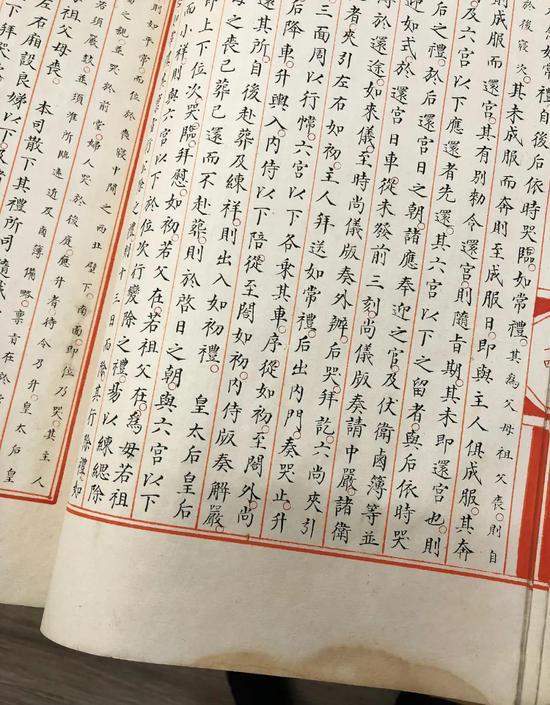 以後依時哭臨。如常禮。其爲父母祖父喪。則自
於後寢次。其未成服而奔則至成服日。即與主人俱成服。其奔
則成服而還宮。其有別勅令還宮。則隨旨期。其未即還宮也。則
及六宮以下應還者先還。其六宮以下之留者。與后依時哭
后之禮。於后還宮日之朝。諸應奉迎之官。及仗衛鹵簿等並
迎如式。於還宮日車從未發前三刻。尚儀版奏請中嚴。諸衛
除於還途如來儀。至時尚儀版奏外辦。后哭拜訖。六尚夾引
者夾引左右如初。主人拜送如常禮。后出內門。奏哭止。升
三面周以行帷。六宮以下各乘其車。序從如初。至閤外。尚
后降車。升輿。入內侍以下陪從至閤如初。內侍版奏解嚴。
其所。自後赴葬及練祥。則出入如初禮。 皇太后皇后
母之喪已葬。已還而不赴葬。則於啓日之朝。與六宮以下
即上下位次哭臨。拜慰。如初。若父在。若祖父在。爲母若祖
而小祥則與六宮以下於位次行變除之禮。易以練緦除
之禮則十三日而除其行除禮。如
則如平常。而位於喪寢中間之西北壁下。南面。即位乃哭。其主人
之親並哭於前堂。婦人哭於後庭。應升者待令乃升。皇太后皇
若須嚴並須准所臨遠近及鹵簿備略。稟旨在於
祖父母喪。 本司散下其禮所司隨
左右廂設良娣以下
下拜哭